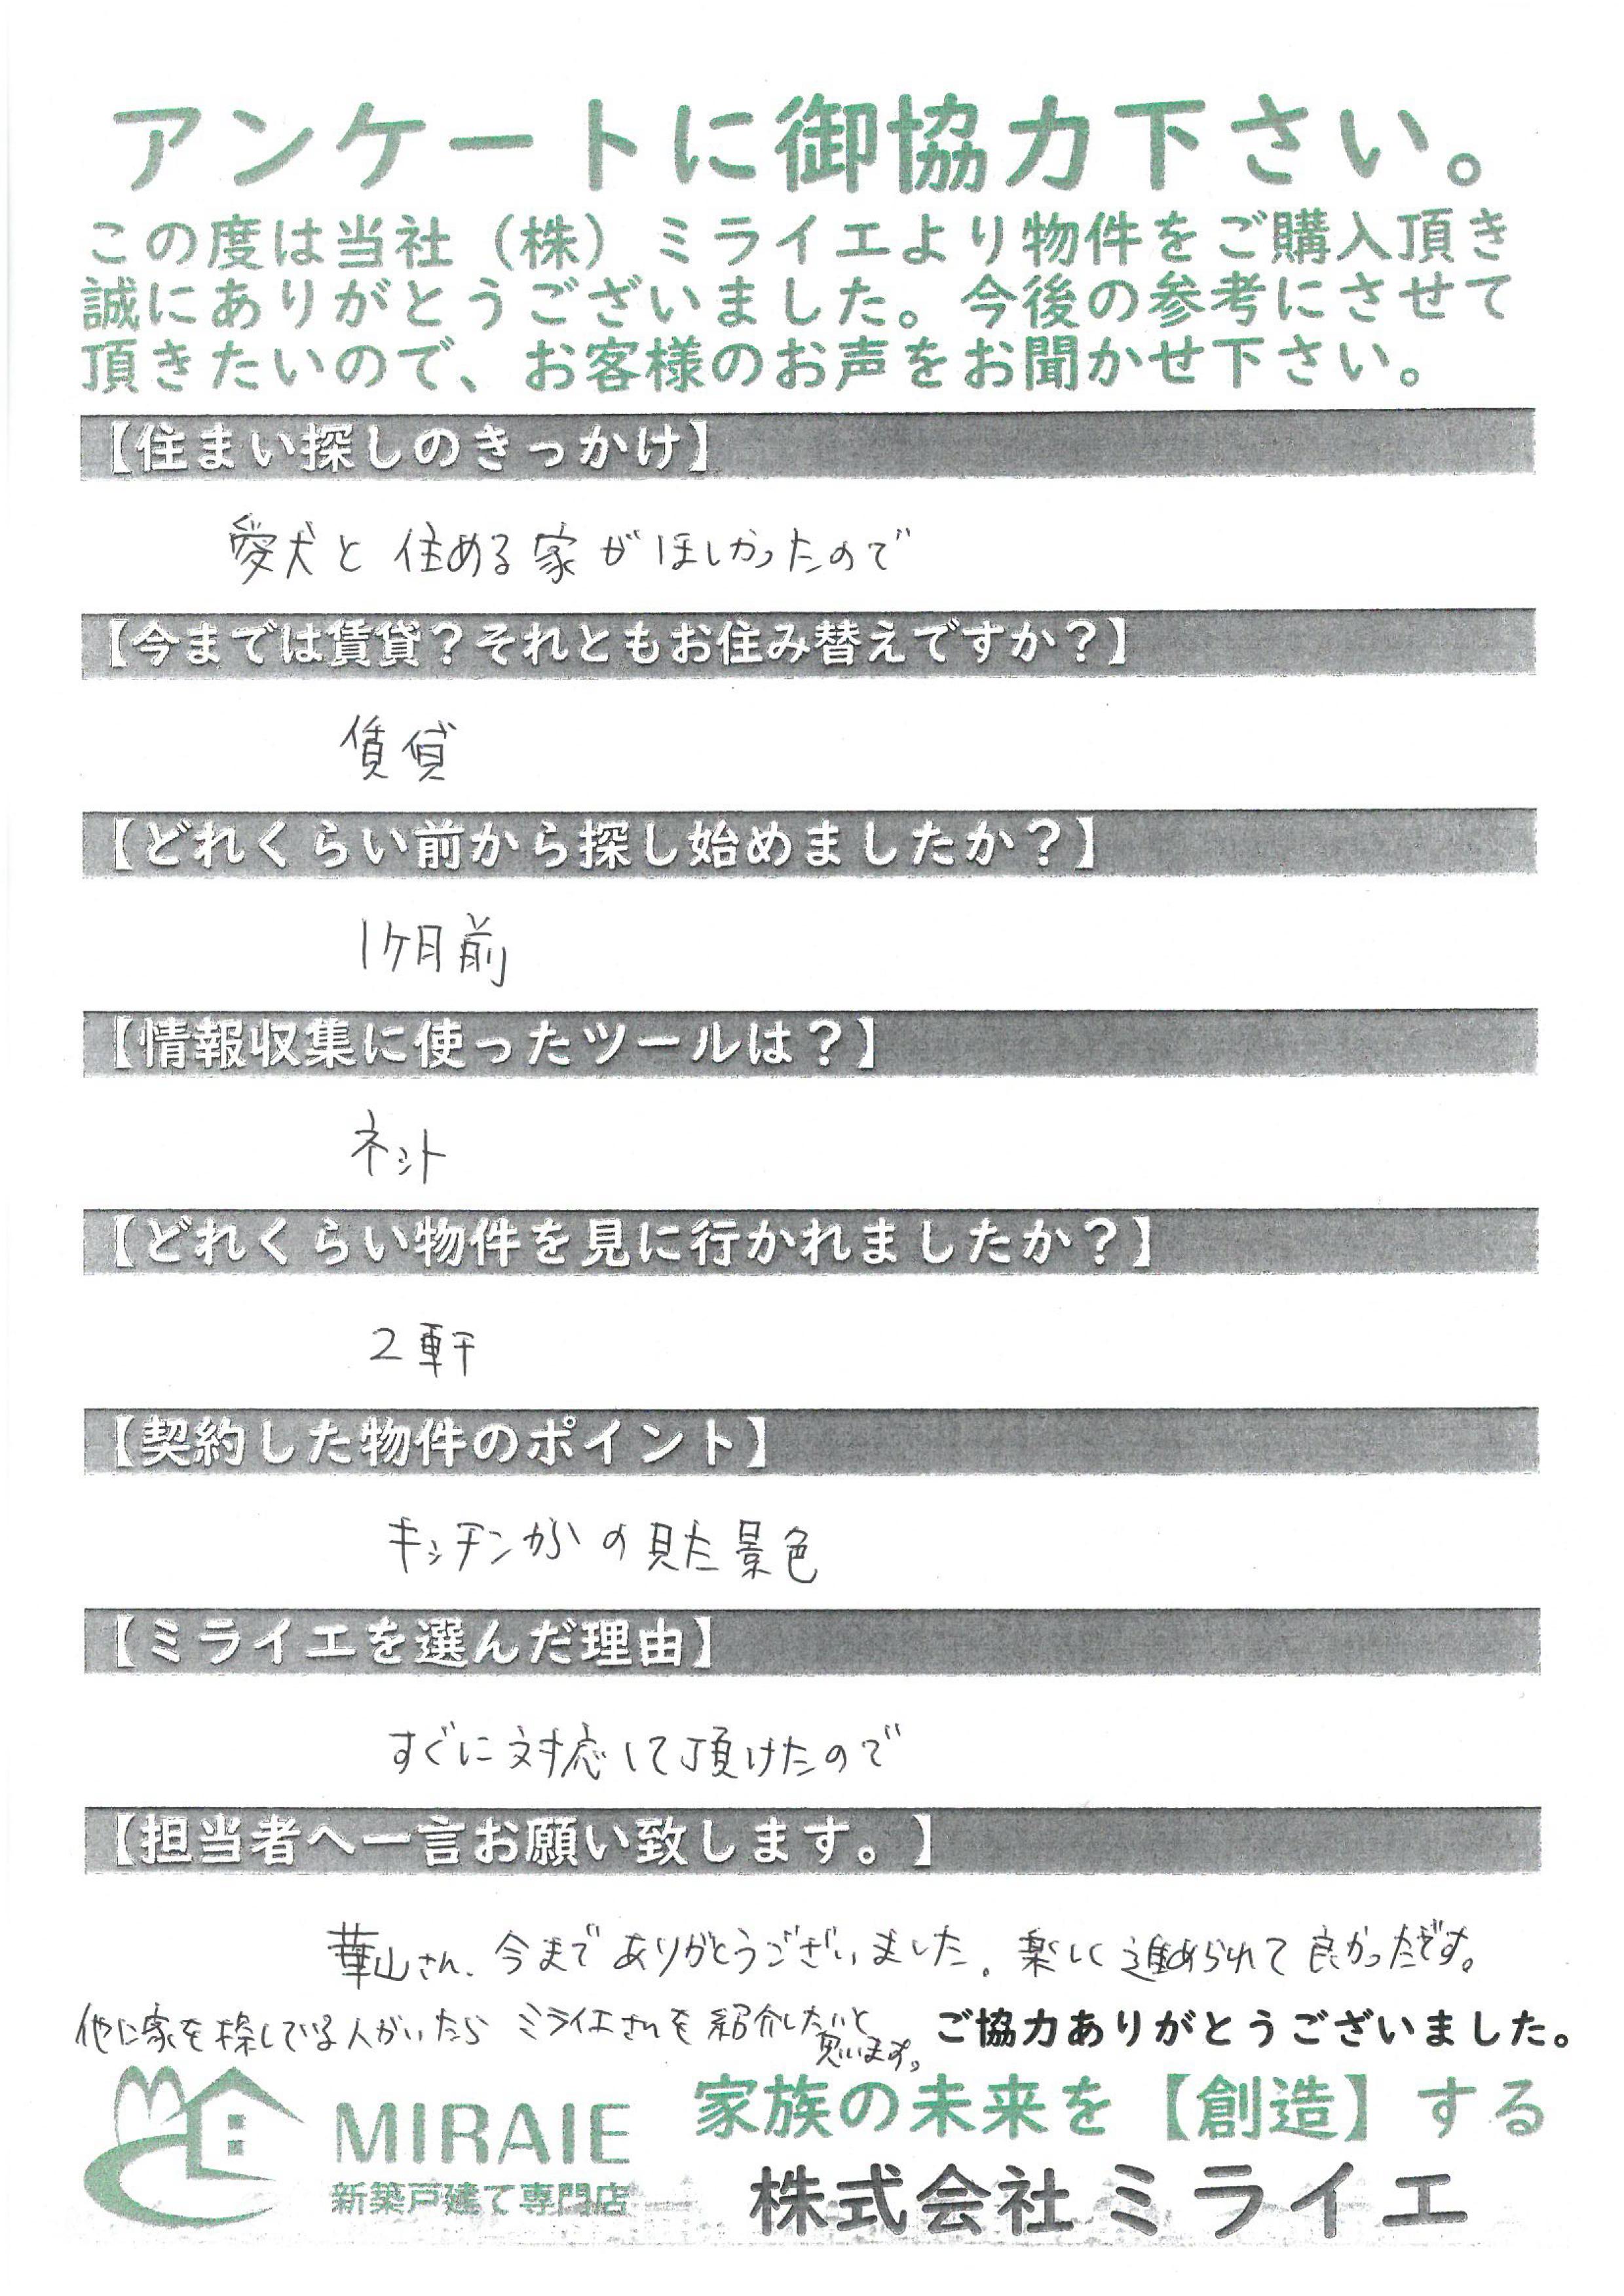 アンケートに御協力下さい。
この度は当社（株）ミライエより物件をご購入頂き
誠にありがとうございました。今後の参考にさせて
頂きたいので、お客様のお声をお聞かせ下さい。
【住まい探しのきっかけ】
愛犬と住める家がほしかったので
【今までは賃貸？それともお住み替えですか？】
賃貸
【どれくらい前から探し始めましたか？】
1ケ月前
【情報収集に使ったツールは？】
ネット
【どれくらい物件を見に行かれましたか？】
2軒
【契約した物件のポイント】
キッチンからの見た景色
【ミライエを選んだ理由】
すぐに対応して頂けたので
【担当者へ一言お願い致します。】
華山さん、今までありがとうございました。楽しく進められて良かったです。
他に家を探している人がいたら ミライエさんを紹介したいと
思います。
ご協力ありがとうございました。
MIRAIE
新築戸建て専門店
家族の未来を【創造】する
株式会社ミライエ